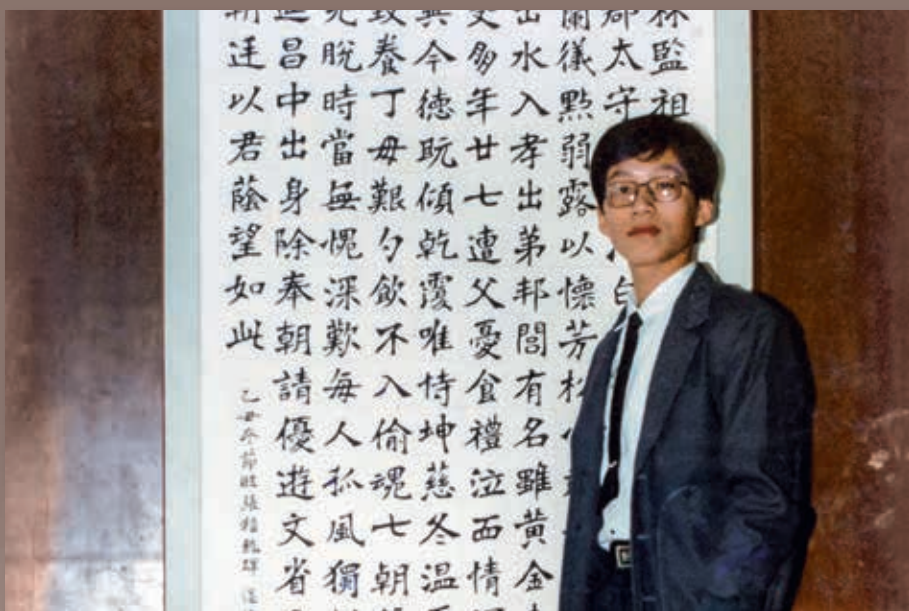 監祖
郡太守
蘭儀點弱露以懷芳松
出水入孝出弟邦閭有名雖黄金
文多年廿七遭父憂食禮泣西情
今德玩傾乾覆唯恃坤慈冬温
致養丁母艱勺飲不入偷魂七朝
脫時當無愧深歎每人孤風獨
昌中出身除奉朝請優遊文省
朝廷以君蔭望如此
乙丑冬節臨張猛龍碑